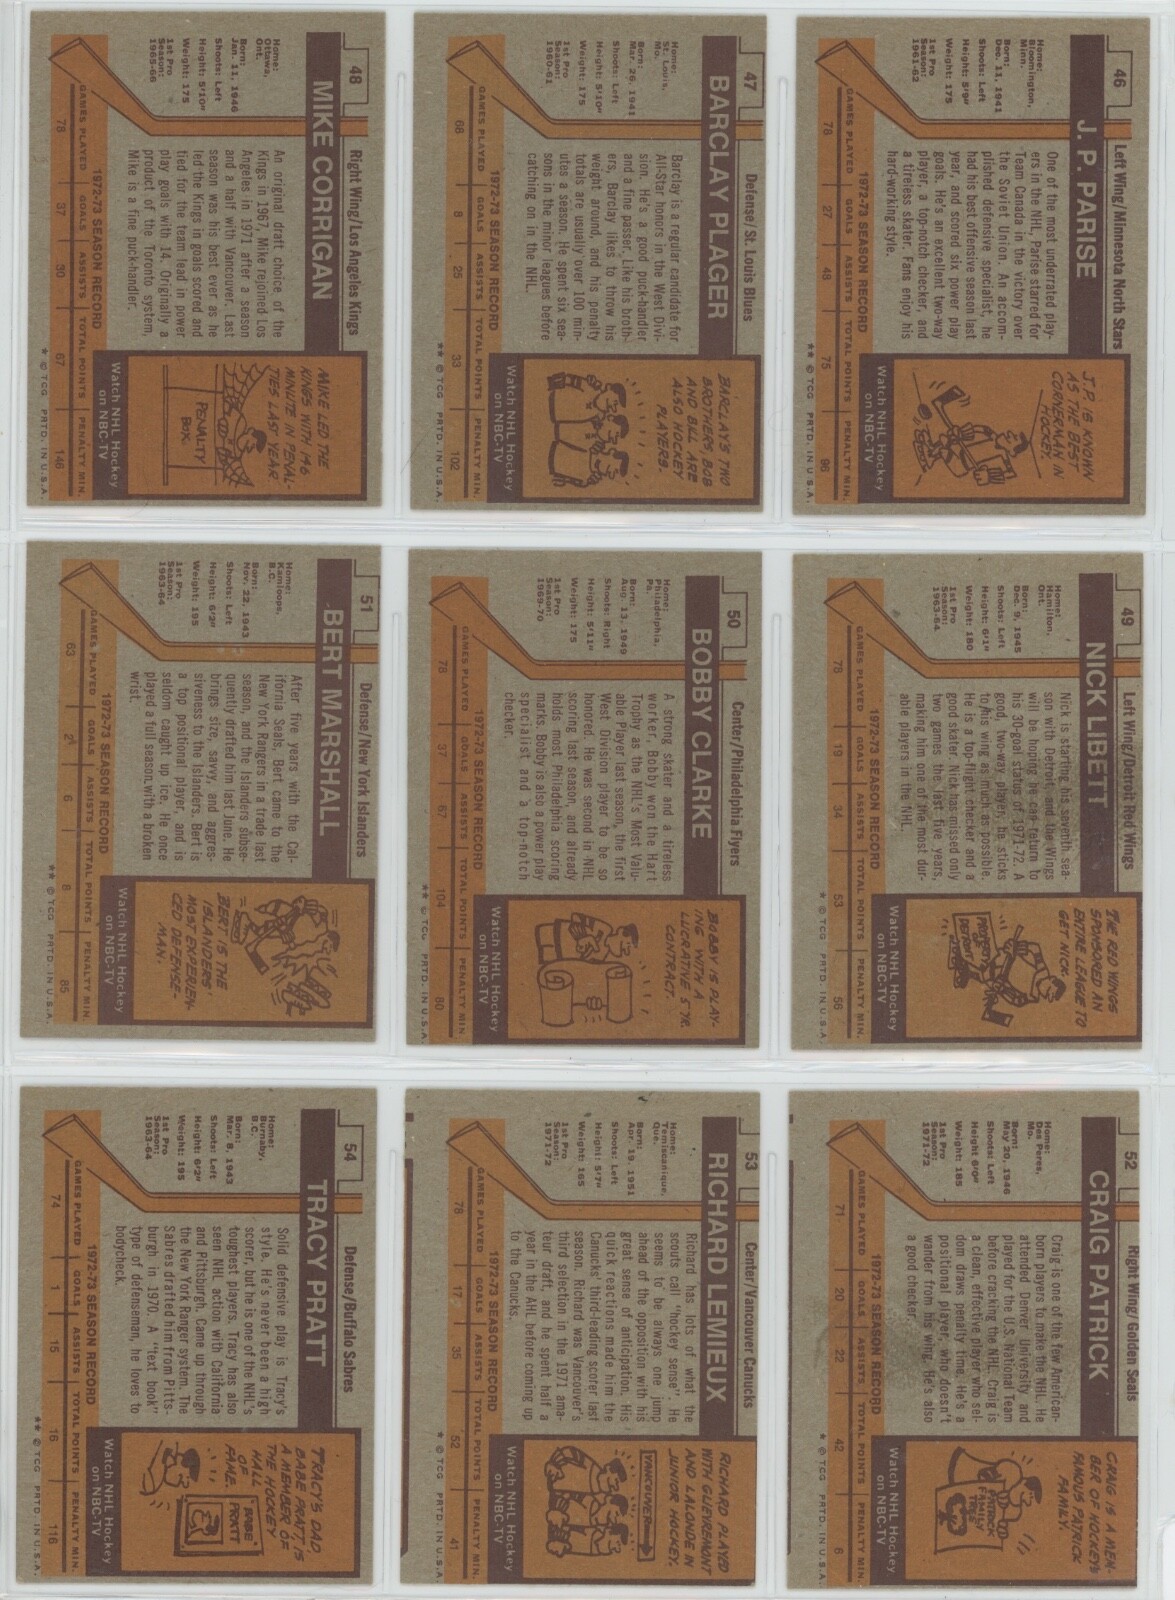 46
Left Wing/Minnesota North Stars
J. P. PARISE
Home:
Bloomington,
Minn.
Born:
Dec. 11, 1941
Shoots: Left
Height: 5'9"
Weight: 175
1st Pro
Season:
1961-62
One of the most underrated play-
ers in the NHL, Parise starred for
Team Canada in the victory over
the Soviet Union. An accom-
plished defensive specialist, he
had his best offensive season last
year, and scored six power play
goals. He's an excellent two-way
player, a top-notch checker, and
a tireless skater. Fans enjoy his
hard-working style.
J.P. IS KNOWN
AS THE BEST
CORNERMAN IN
HOCKEY.
Watch NHL Hockey
on NBC-TV
1972-73 SEASON RECORD
GAMES PLAYED GOALS ASSISTS TOTAL POINTS PENALTY MIN.
78 27 48 75 96
** © TCG PRTD. IN U.S.A.
47
Defense/St. Louis Blues
BARCLAY PLAGER
Home:
St. Louis,
Mo.
Born:
Mar. 26, 1941
Shoots: Left
Height: 5'10"
Weight: 175
1st Pro
Season:
1960-61
Barclay is a regular candidate for
All-Star honors in the West Divi-
sion. He's a good puck-handler
and a fine passer. Like his broth-
ers, Barclay likes to throw his
weight around, and his penalty
totals are usually over 100 min-
utes a season. He spent six sea-
sons in the minor leagues before
catching on in the NHL.
BARCLAY'S TWO
BROTHERS, BOB
AND BILL ARE
ALSO HOCKEY
PLAYERS.
Watch NHL Hockey
on NBC-TV
1972-73 SEASON RECORD
GAMES PLAYED GOALS ASSISTS TOTAL POINTS PENALTY MIN.
68 8 25 33 102
** © TCG PRTD. IN U.S.A.
48
Right Wing/Los Angeles Kings
MIKE CORRIGAN
Home:
Ottawa,
Ont.
Born:
Jan. 11, 1946
Shoots: Left
Height: 5'10"
Weight: 175
1st Pro
Season:
1965-66
An original draft choice of the
Kings in 1967, Mike rejoined Los
Angeles in 1971 after a season
and a half with Vancouver. Last
season was his best ever as he
led the Kings in goals scored and
tied for the team lead in power
play goals with 14. Originally a
product of the Toronto system,
Mike is a fine puck-handler.
MIKE LED THE
KINGS WITH 146
MINUTE IN PENAL-
TIES LAST YEAR
PENALTY
BOX
Watch NHL Hockey
on NBC-TV
1972-73 SEASON RECORD
GAMES PLAYED GOALS ASSISTS TOTAL POINTS PENALTY MIN.
78 37 30 67 146
* © TCG PRTD. IN U.S.A.
49
Left Wing/Detroit Red Wings
NICK LIBETT
Home:
Hamilton,
Ont.
Born:
Dec. 9, 1945
Shoots: Left
Height: 6'1"
Weight: 180
1st Pro
Season:
1963-64
Nick is starting his seventh sea-
son with Detroit, and the Wings
will be hoping he can return to
his 30-goal status of 1971-72. A
good, two-way player, he sticks
to his wing as much as possible.
He is a top-flight checker and a
good skater. Nick has missed only
two games the last five years,
making him one of the most dur-
able players in the NHL.
THE RED WINGS
SPONSORED AN
ENTIRE LEAGUE TO
GET NICK.
PROPERTY
OF
DETROIT
Watch NHL Hockey
on NBC-TV
1972-73 SEASON RECORD
GAMES PLAYED GOALS ASSISTS TOTAL POINTS PENALTY MIN.
78 19 34 53 56
* © TCG PRTD. IN U.S.A.
50
Center/Philadelphia Flyers
BOBBY CLARKE
Home:
Philadelphia,
Pa.
Born:
Aug. 13, 1949
Shoots: Right
Height: 5'11"
Weight: 175
1st Pro
Season:
1969-70
A strong skater and a tireless
worker, Bobby won the Hart
Trophy as the NHL's Most Valu-
able Player last season, the first
West Division player to be so
honored. He was second in NHL
scoring last season, and already
holds most Philadelphia scoring
marks. Bobby is also a power play
specialist and a top-notch
checker.
BOBBY IS PLAY-
ING WITH A
LUCRATIVE 5 YR.
CONTRACT.
Watch NHL Hockey
on NBC-TV
1972-73 SEASON RECORD
GAMES PLAYED GOALS ASSISTS TOTAL POINTS PENALTY MIN.
78 37 67 104 80
** © TCG PRTD. IN U.S.A.
51
Defense/New York Islanders
BERT MARSHALL
Home:
Kamloops,
B.C.
Born:
Nov. 22, 1943
Shoots: Left
Height: 6'2"
Weight: 195
1st Pro
Season:
1963-64
After five years with the Cal-
ifornia Seals, Bert came to the
New York Rangers in a trade last
season, and the Islanders subse-
quently drafted him last June. He
brings size, savvy, and aggres-
siveness to the Islanders. Bert is
a top positional player, and is
seldom caught up ice. He once
played a full season with a broken
wrist.
BERT IS THE
ISLANDERS'
MOST EXPERIEN-
CED DEFENSE-
MAN.
Watch NHL Hockey
on NBC-TV
1972-73 SEASON RECORD
GAMES PLAYED GOALS ASSISTS TOTAL POINTS PENALTY MIN.
63 2 6 8 85
** © TCG PRTD. IN U.S.A.
52
Right Wing/Golden Seals
CRAIG PATRICK
Home:
Des Peres,
Mo.
Born:
May 20, 1946
Shoots: Left
Height: 6'0"
Weight: 185
1st Pro
Season:
1971-72
Craig is one of the few American-
born players to make the NHL. He
attended Denver University and
played for the U.S. National Team
before cracking the NHL. Craig is
a clean, effective player who sel-
dom draws penalty time. He's a
positional player, who doesn't
wander from his wing. He's also
a good checker.
CRAIG IS A MEM-
BER OF HOCKEY'S
FAMOUS PATRICK
FAMILY.
PATRICK
FAMILY
TREE
Watch NHL Hockey
on NBC-TV
1972-73 SEASON RECORD
GAMES PLAYED GOALS ASSISTS TOTAL POINTS PENALTY MIN.
71 20 22 42 6
* © TCG PRTD. IN U.S.A.
53
Center/Vancouver Canucks
RICHARD LEMIEUX
Home:
Temiscamique,
Que.
Born:
Apr. 19, 1951
Shoots: Left
Height: 5'7"
Weight: 165
1st Pro
Season:
1971-72
Richard has lots of what the
scouts call "hockey sense". He
seems to be always one jump
ahead of the opposition with his
great sense of anticipation. His
quick reactions made him the
Canucks' third-leading scorer last
season. Richard was Vancouver's
third selection in the 1971 ama-
teur draft, and he spent half a
year in the AHL before coming up
to the Canucks.
RICHARD PLAYED
WITH GUEVREMONT
AND LALONDE IN
JUNIOR HOCKEY.
VANCOUVER
Watch NHL Hockey
on NBC-TV
1972-73 SEASON RECORD
GAMES PLAYED GOALS ASSISTS TOTAL POINTS PENALTY MIN.
78 17 35 52 41
* © TCG PRTD. IN U.S.A.
54
Defense/Buffalo Sabres
TRACY PRATT
Home:
Burnaby,
B.C.
Born:
Mar. 8, 1943
Shoots: Left
Height: 6'2"
Weight: 195
1st Pro
Season:
1963-64
Solid defensive play is Tracy's
style. He's never been a high
scorer, but he is one of the NHL's
toughest players. Tracy has also
seen NHL action with California
and Pittsburgh. Came up through
the New York Ranger system. The
Sabres drafted him from Pitts-
burgh in 1970. A "text book"
type of defenseman, he loves to
bodycheck.
TRACY'S DAD,
BABE PRATT IS
A MEMBER OF
THE HOCKEY
HALL
OF
FAME.
BABE
PRATT
Watch NHL Hockey
on NBC-TV
1972-73 SEASON RECORD
GAMES PLAYED GOALS ASSISTS TOTAL POINTS PENALTY MIN.
74 1 15 16 116
** © TCG PRTD. IN U.S.A.